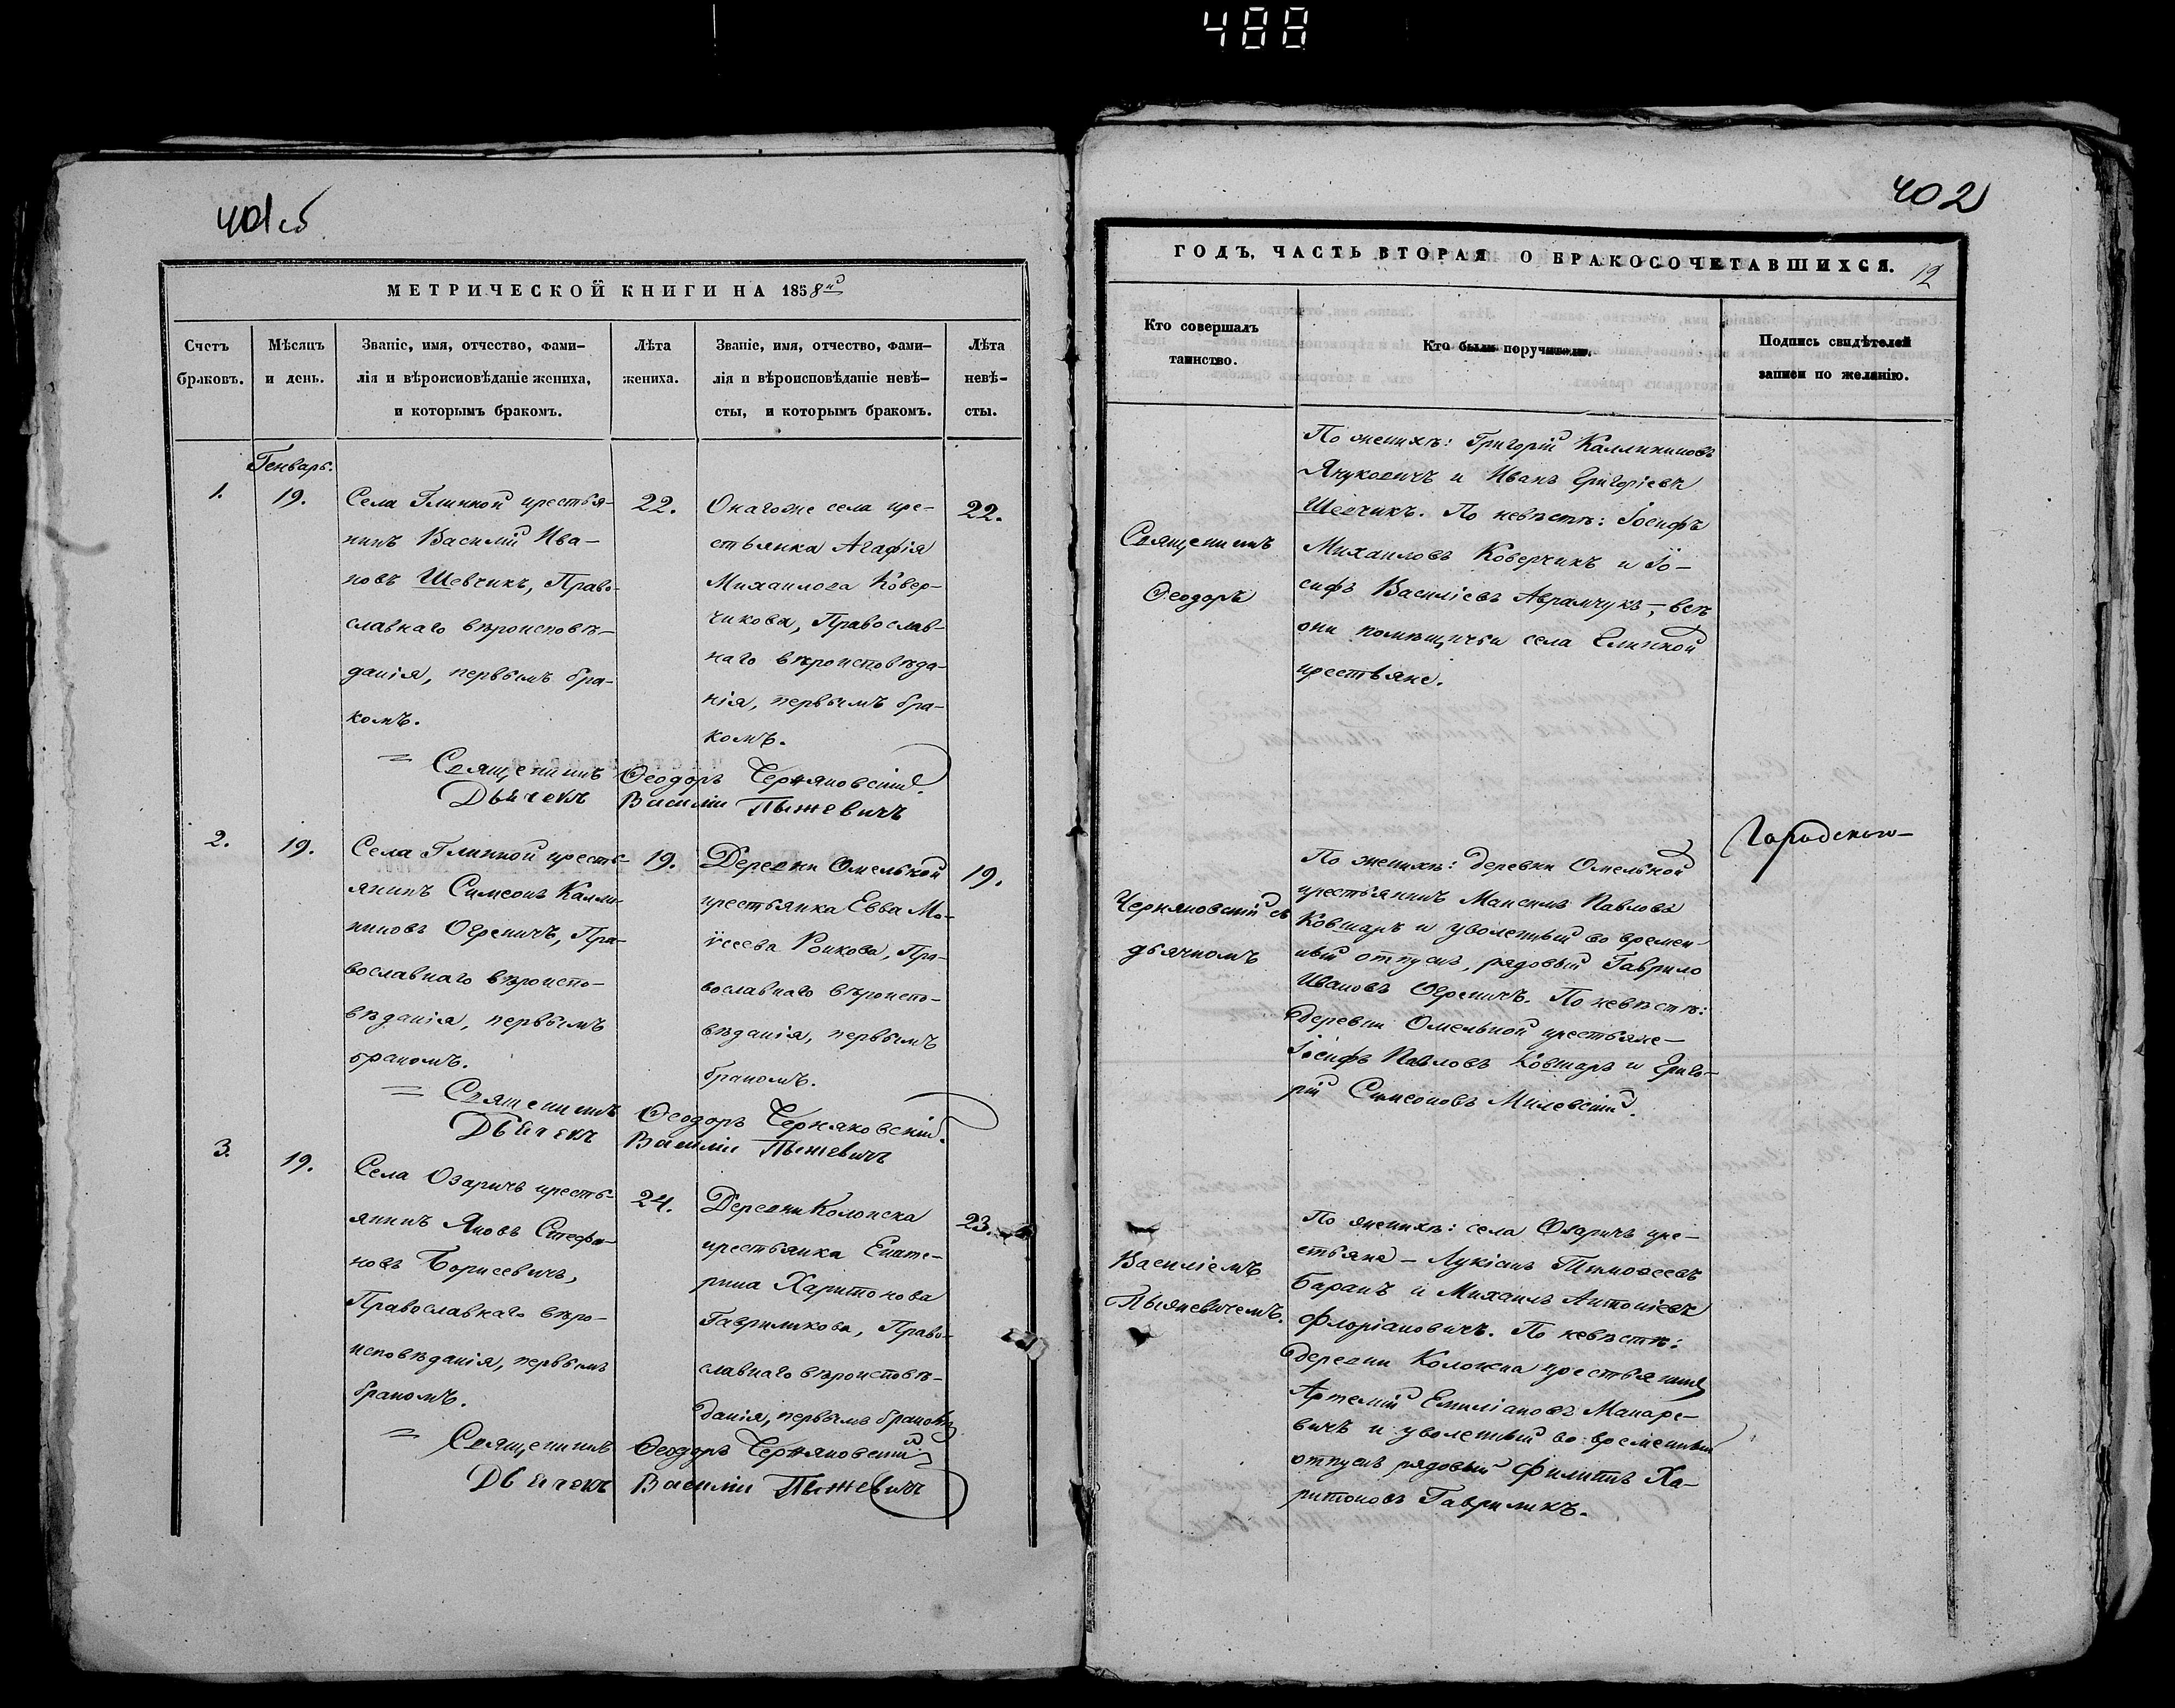 488
401 об
МЕТРИЧЕСКОЙ КНИГИ НА 1858й
Счетъ
браковъ.
Мѣсяцъ
и день.
Званіе, имя, отчество, фами-
лія и вѣроисповѣданіе жениха,
и которымъ бракомъ.
Лѣта
жениха.
Званіе, имя, отчество, фами-
лія и вѣроисповѣданіе невѣ-
сты, и которымъ бракомъ.
Лѣта
невѣ-
сты.
Генварь.
1.
19.
Села Глинной крестья-
нинъ Василій Ива-
новъ Шевчикъ, Право-
славнаго вѣроисповѣ-
данія, первымъ бра-
комъ.
22.
Онагоже села кре-
стьянка Агафія
Михаилова Ковер-
чикова, Православ-
наго вѣроисповѣда-
нія, первымъ бра-
комъ.
22.
= Священникъ Ѳеодоръ Черняковскій.
Дьячекъ Василій Пыжевичъ
2.
19.
Села Глинной кресть-
янинъ Симеонъ Калли-
никовъ Огреничъ, Пра-
вославнаго вѣроиспо-
вѣданія, первымъ
бракомъ.
19.
Деревни Омельной
крестьянка Евва Мо-
ѵсеева Роикова, Пра-
вославнаго вѣроиспо-
вѣданія, первымъ
бракомъ.
19.
= Священникъ Ѳеодоръ Черняковскій.
Дьячекъ Василій Пыжевичъ
3.
19.
Села Озаричъ кресть-
янинъ Яковъ Стефа-
новъ Борисевичъ,
Православнаго вѣро-
исповѣданія, первымъ
бракомъ.
24.
Деревни Колонска
крестьянка Екате-
рина Харитонова
Гаврилкова, Право-
славнаго вѣроисповѣ-
данія, первымъ бракомъ
23.
= Священникъ Ѳеодоръ Черняковскій
Дьячекъ Василій Пыжевичъ
402
ГОДЪ, ЧАСТЬ ВТОРАЯ О БРАКОСОЧЕТАВШИХСЯ.
12
Кто совершалъ
таинство.
Кто были поручители.
Подпись свидѣтелей
записи по желанію.
Священникъ
Ѳеодоръ
Черняковскій съ
дьячкомъ
Василіемъ
Пыжевичемъ.
По женихѣ: Григорій Каллиниковъ
Януковичъ и Иванъ Григоріевъ
Шевчикъ. По невѣстѣ: Іосифъ
Михаиловъ Коверчикъ и Іо-
сифъ Василіевъ Аврамчукъ, - всѣ
они помѣщичьи села Глинной
крестьяне.
По женихѣ: деревни Омельной
крестьянинъ Максимъ Павловъ
Ковшаръ и уволенный во времен-
ный отпускъ, рядовый Гаврило
Ивановъ Огреничъ. По невѣстѣ:
деревни Омельной крестьяне-
Іосифъ Павловъ Ковшаръ и Григо-
рій Симеоновъ Милевскій.
По женихѣ: села Озаричъ кре-
стьяне - Лукіанъ Тимоѳеевъ
Баранъ и Михаилъ Антоніевъ
Флоріановичъ. По невѣстѣ:
деревни Колонска крестьянинъ
Артемій Емиліановъ Макаре-
вичъ и уволенный во временный
отпускъ рядовый Филиппъ Ха-
ритоновъ Гавриликъ.